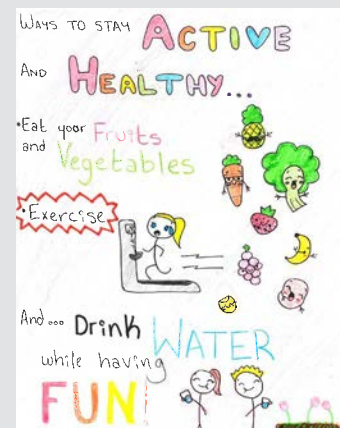 WAYS TO STAY ACTIVE
AND HEALTHY...
•Eat your Fruits
and Vegetables
•Exercise
And... Drink WATER
while having
FUN!